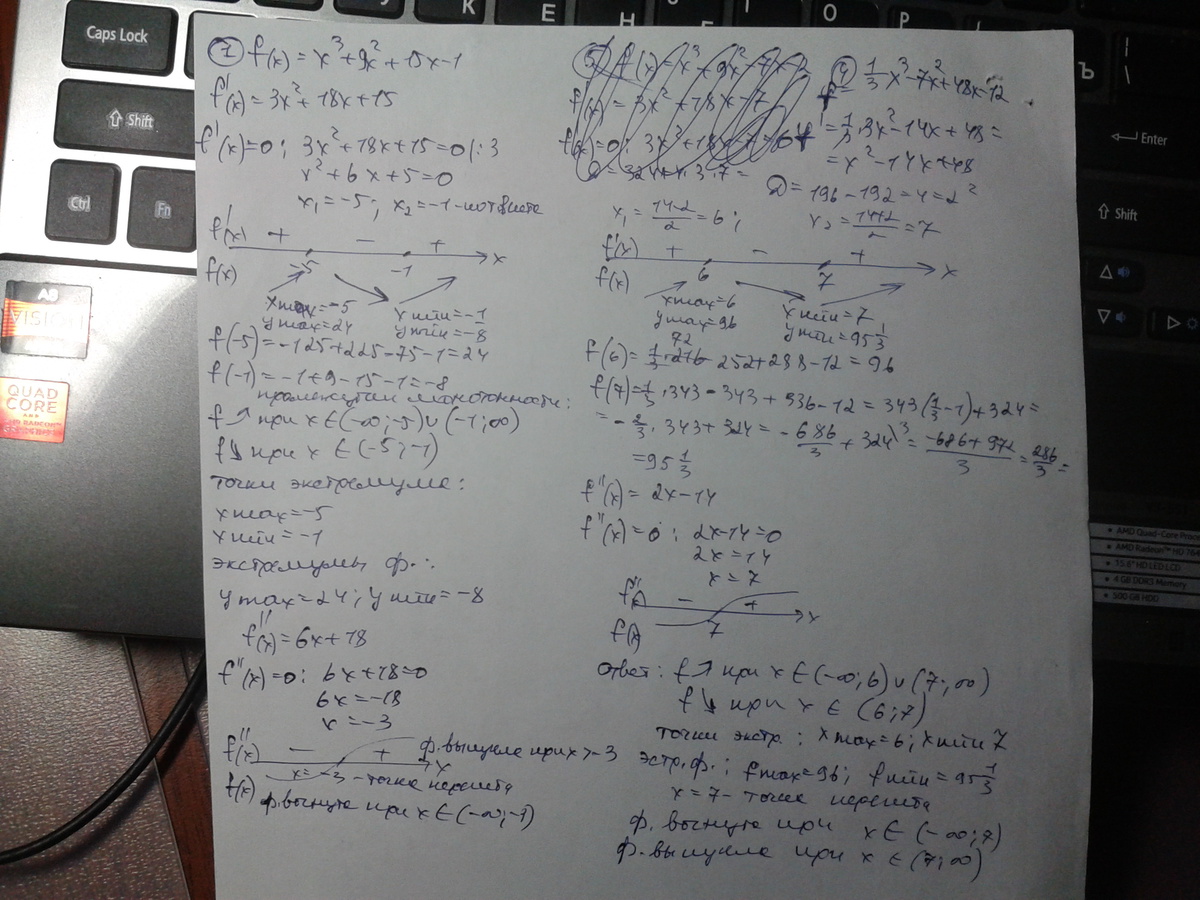 Caps Lock
Shift
Ctrl
Fn
Enter
Shift
QUAD CORE
① f(x) = x³+9x²+15x-1
f'(x) = 3x²+18x+15
f'(x)=0; 3x²+18x+15=0 |:3
x²+6x+5=0
x₁=-5; x₂=-1
f'(x) + - + x
f(x) -5 -1
xmax=-5 xмin=-1
ymax=24 yмin=-8
f(-5)=-125+225-75-1=24
f(-1)=-1+9-15-1=-8
промежутки монотонности:
f ↗ при x∈(-∞;-5)∪(-1;∞)
f↘ при x∈(-5;-1)
точки экстремума:
xmax=-5
xмin=-1
экстремумы ф.:
ymax=24; yмin=-8
f''(x)=6x+18
f''(x)=0; 6x+18=0
6x=-18
x=-3
f''(x) - + x ф. выпукла при x>-3
f(x) x=-3 - точка перегиба
ф. вогнута при x∈(-∞;-1)
④ f = 1/3 x³-7x²+48x-12
f' = 1/3·3x²-14x+48=
=x²-14x+48
D=196-192=4=2²
x₁=(14-2)/2=6; x₂=(14+2)/2=7
f'(x) + - + x
f(x) 6 7
xmax=6 xмin=7
ymax=96 yмin=95 1/3
72
f(6)=1/3·216-252+288-12=96
f(7)=1/3·343-343+336-12=343(1/3-1)+324=
=-2/3·343+324=-686/3+324\³=(-686+972)/3=286/3=
=95 1/3
f''(x)=2x-14
f''(x)=0; 2x-14=0
2x=14
x=7
f'' - + x
f(x) 7
ответ: f↗ при x∈(-∞;6)∪(7;∞)
f↘ при x∈(6;7)
точки экстр.: xmax=6; xмin 7
Эстр.ф.; fmax=96; fмin=95 1/3
x=7- точка перегиба
ф. вогнута при x∈(-∞;7)
ф. выпукла при x∈(7;∞)
AMD Radeon™ HD
15.6" HD LED LCD
4 GB DDR3 Memory
500 GB HDD